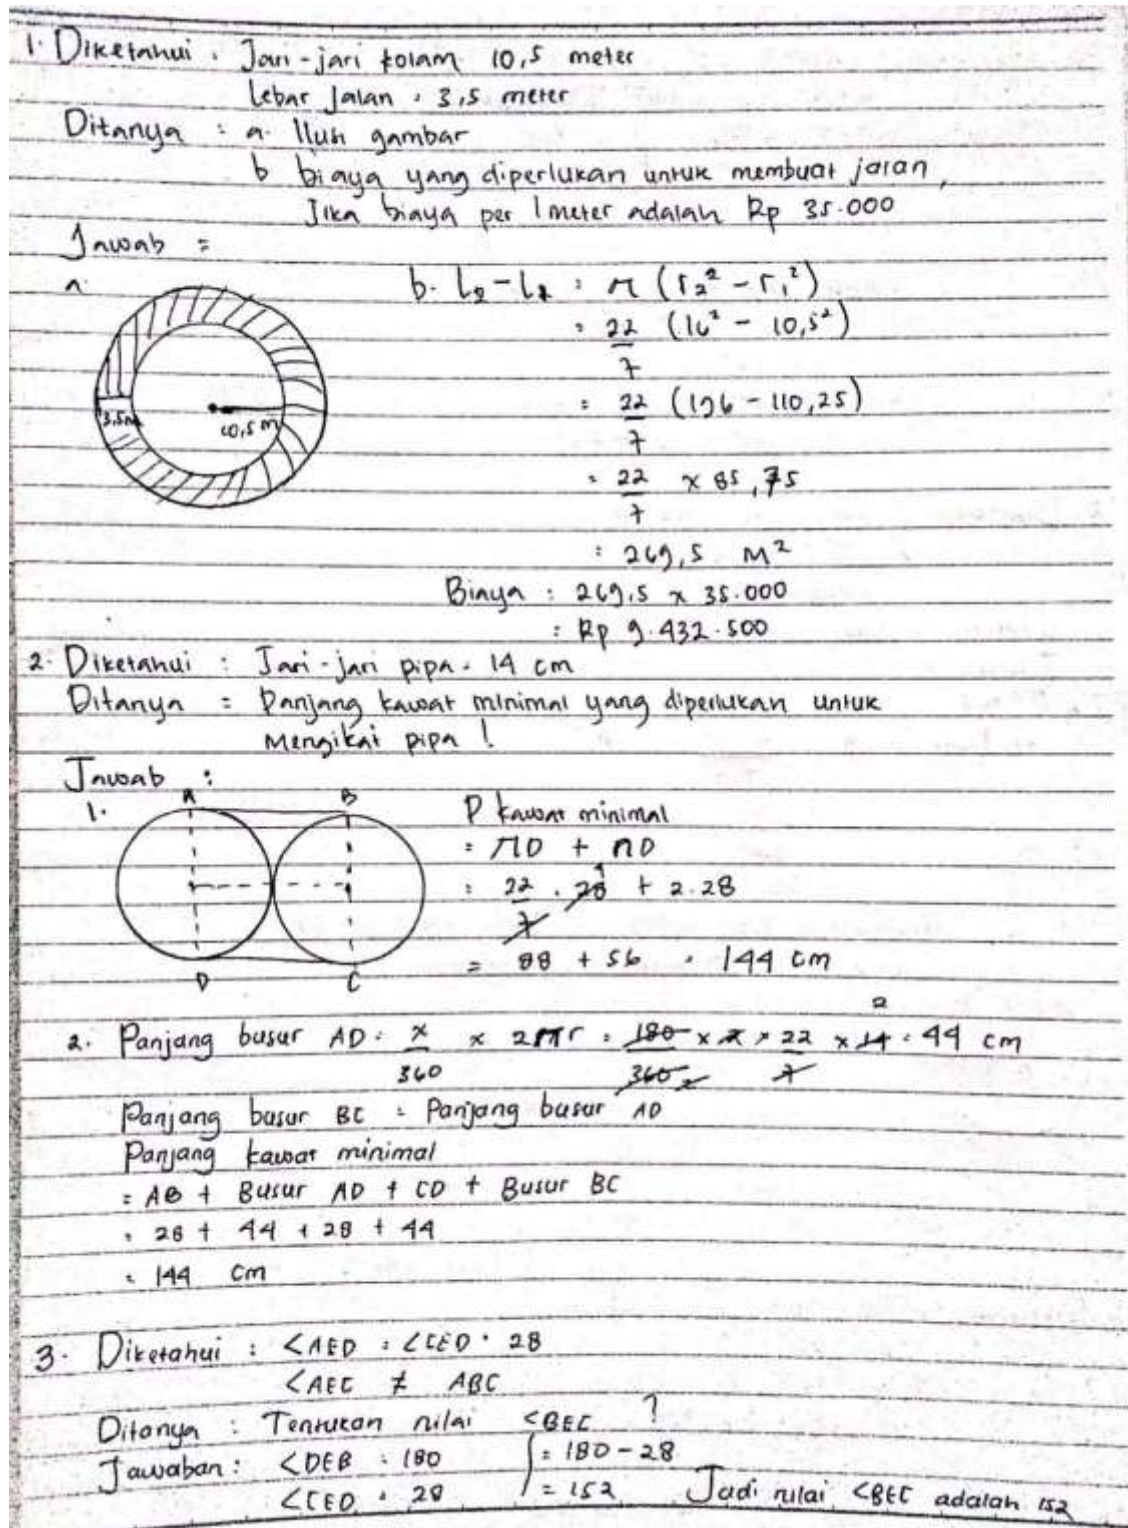 1. Diketahui : Jari-jari kolam 10,5 meter
Lebar Jalan : 3,5 meter
Ditanya : a. Ilusi gambar
b biaya yang diperlukan untuk membuat jalan,
Jika biaya per 1 meter adalah Rp 35.000
Jawab =
a.
3,5m
10,5 m
b. L₂ - L₁ : π (r₂² - r₁²)
= 22/7 (16² - 10,5²)
= 22/7 (196 - 110,25)
= 22/7 × 85,75
= 269,5 M²
Biaya : 269,5 × 35.000
= Rp 9.432.500
2. Diketahui : Jari-jari pipa = 14 cm
Ditanya = Panjang kawat minimal yang diperlukan untuk
Mengikat pipa !
Jawab :
1.
A B
D C
P kawat minimal
= πD + nD
= 22/7 . 28 4 + 2.28
= 88 + 56 = 144 cm
2. Panjang busur AD = x/360 × 2πr = 180/360 2 × 2 × 22/7 × 14 2 = 44 cm
Panjang busur BC = Panjang busur AD
Panjang kawat minimal
= AB + Busur AD + CD + Busur BC
= 28 + 44 + 28 + 44
= 144 cm
3. Diketahui : <AED = <CED = 28
<AEC ≠ ABC
Ditanya : Tentukan nilai <BEC ?
Jawaban : <DEB = 180 = 180 - 28
<CED = 28 = 152 Jadi nilai <BEC adalah 152